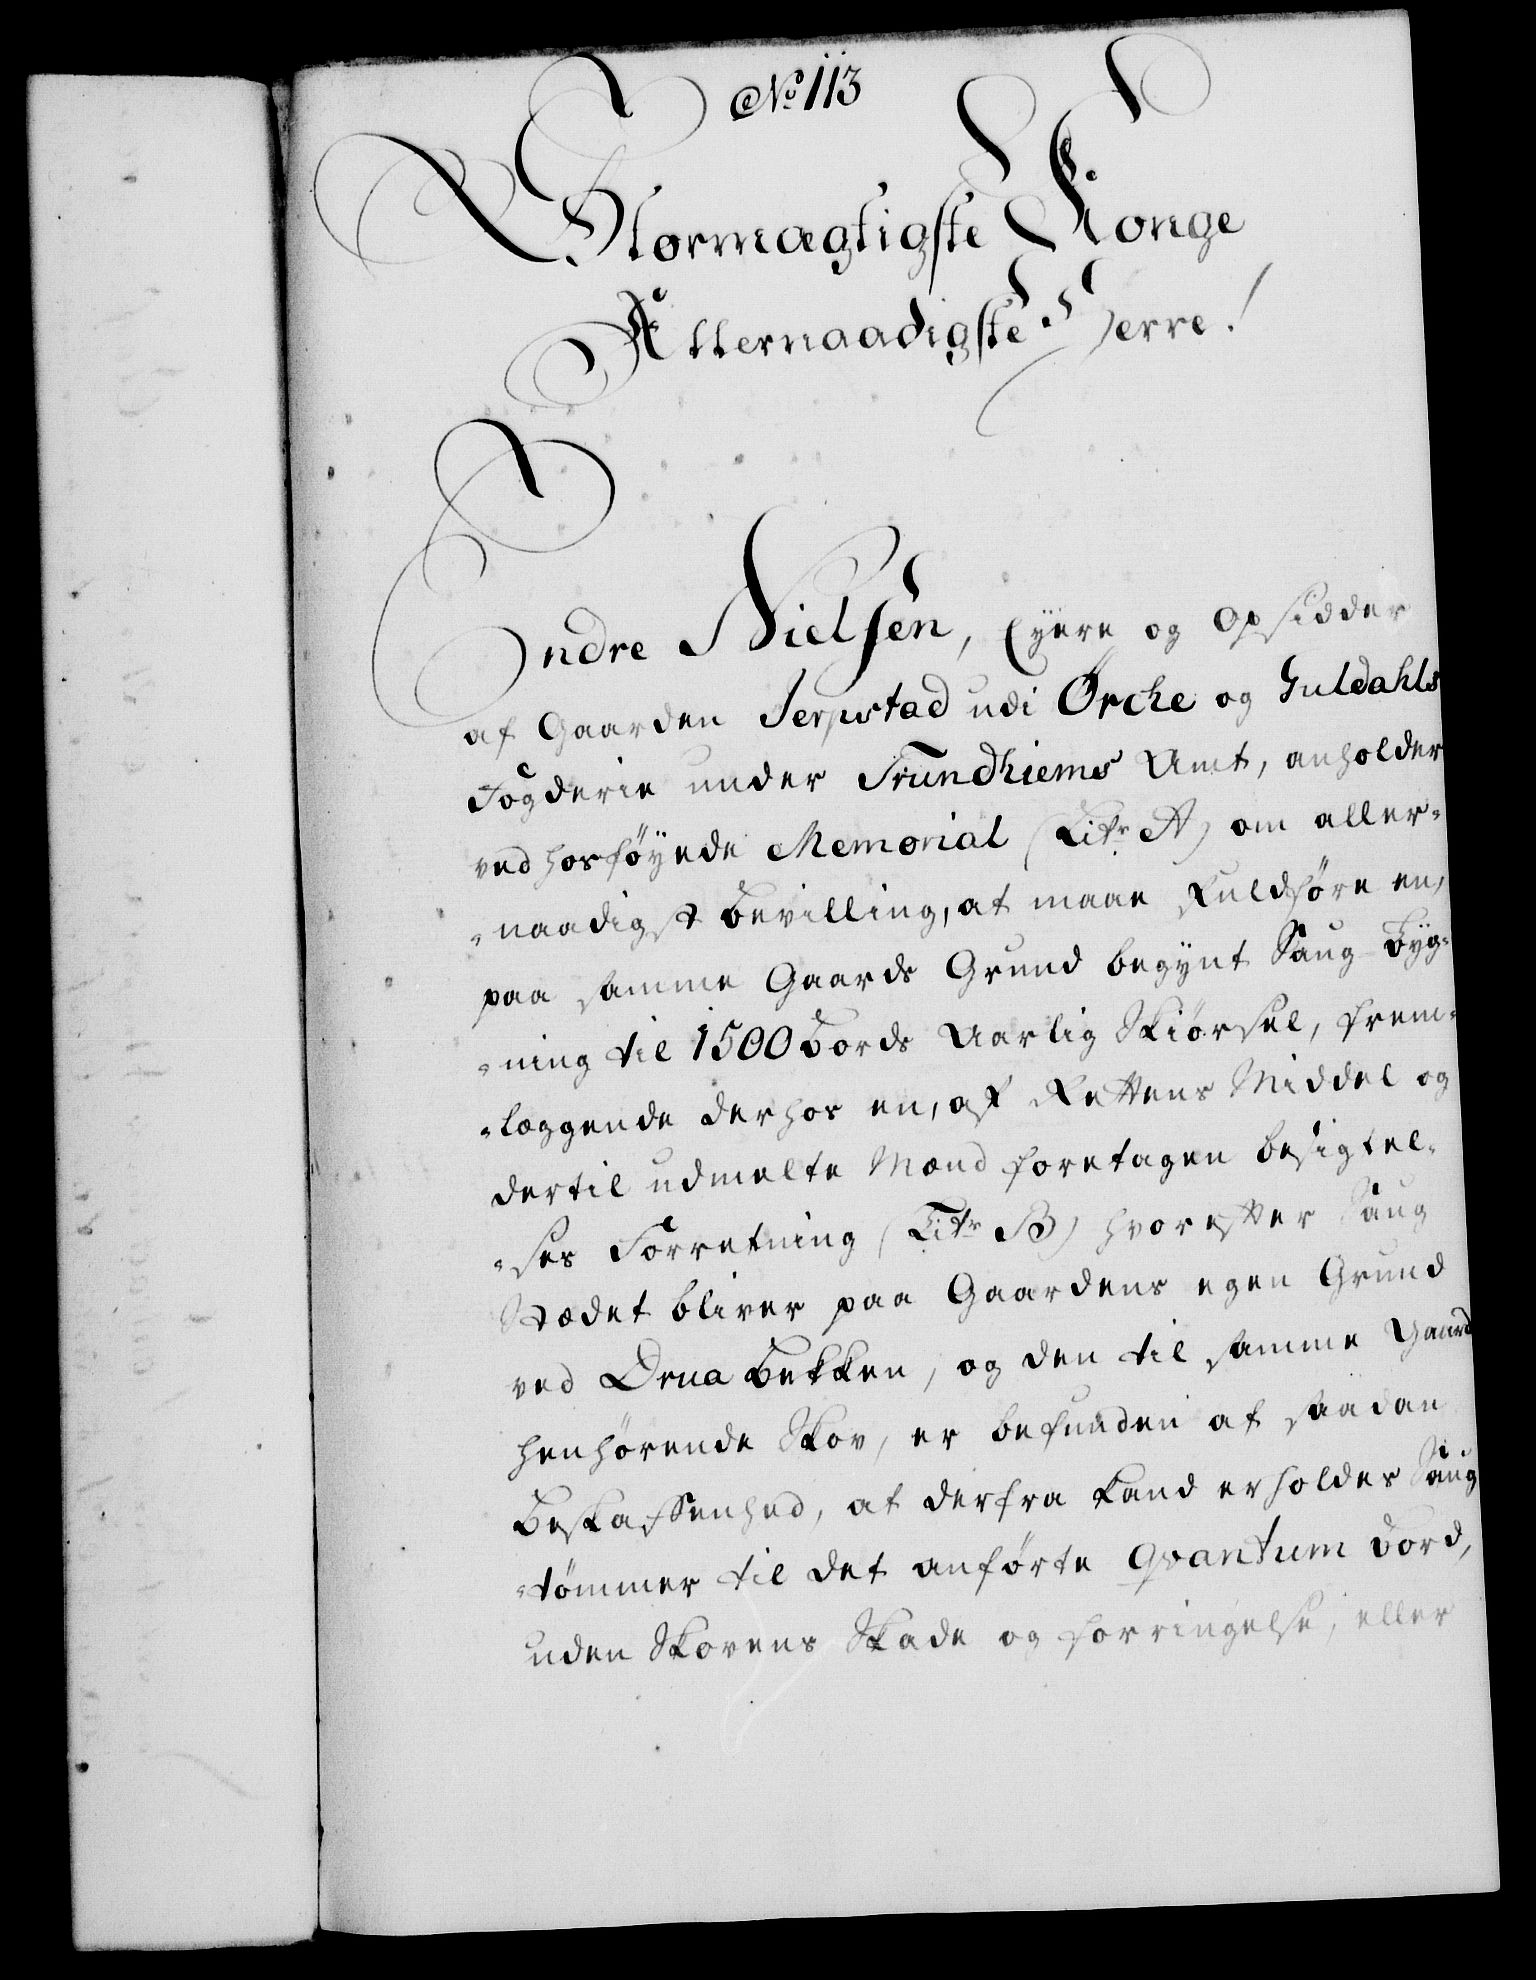 No 113
Stormægtigste Konge
Allernaadigste Herre!
Endre Nielsen, Eyere og Opsidder
af Gaarden Jerpstad udi Ørche og Guldahls
Fogderie under Trundhiems Amt, anholder
ved hosføyede Memorial (Litr A) om aller-
-naadigst Bevilling, at maae Fuldføre en,
paa samme Gaards Grund begynt Saug-Byg-
-ning til 1500 Bords Aarlig Skiørsel, frem-
-læggende derhos en, af Rettens Middel og
dertil udmelte Mænd foretagen besigtel-
-ses Forretning (Litr B) hvorefter Saug
Stædet bliver paa Gaardens egen Grund
ved Ørna Bekken, og den til samme Gaard
henhørende Skov, er befunden af saadan
Beskaffenhed, at derfra kand erholdes Saug
-tømmer til det anførte Qvantum Bord,
uden Skovens Skade og forringelse, eller